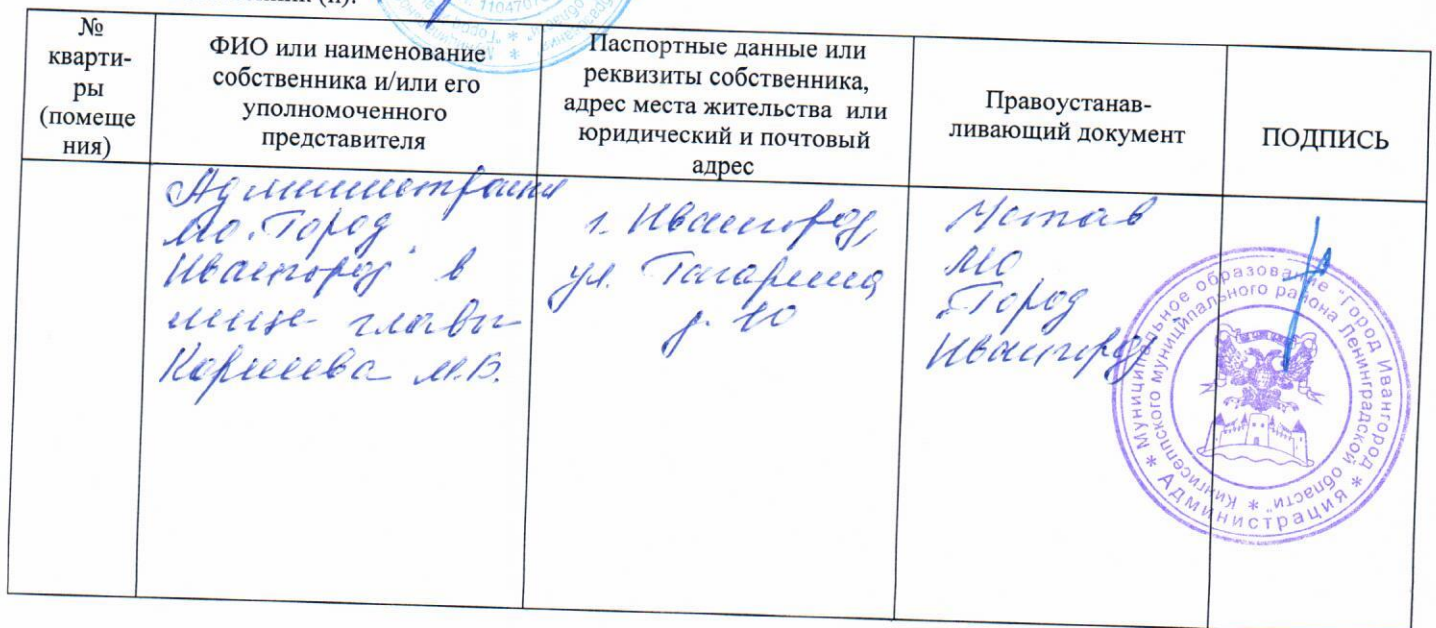 №
кварти-
ры
(помеще
ния)
ФИО или наименование
собственника и/или его
уполномоченного
представителя
Паспортные данные или
реквизиты собственника,
адрес места жительства или
юридический и почтовый
адрес
Правоустанав-
ливающий документ
ПОДПИСЬ
Администрация
МО "Город
Ивангород" в
лице главы
Карпева М.В.
г. Ивангород,
ул. Гагарина
д. 10
Устав
МО
"Город
Ивангород"
* Муниципальное образование "Город Ивангород *
Кингисеппского муниципального района Ленинградской области" *
Администрация